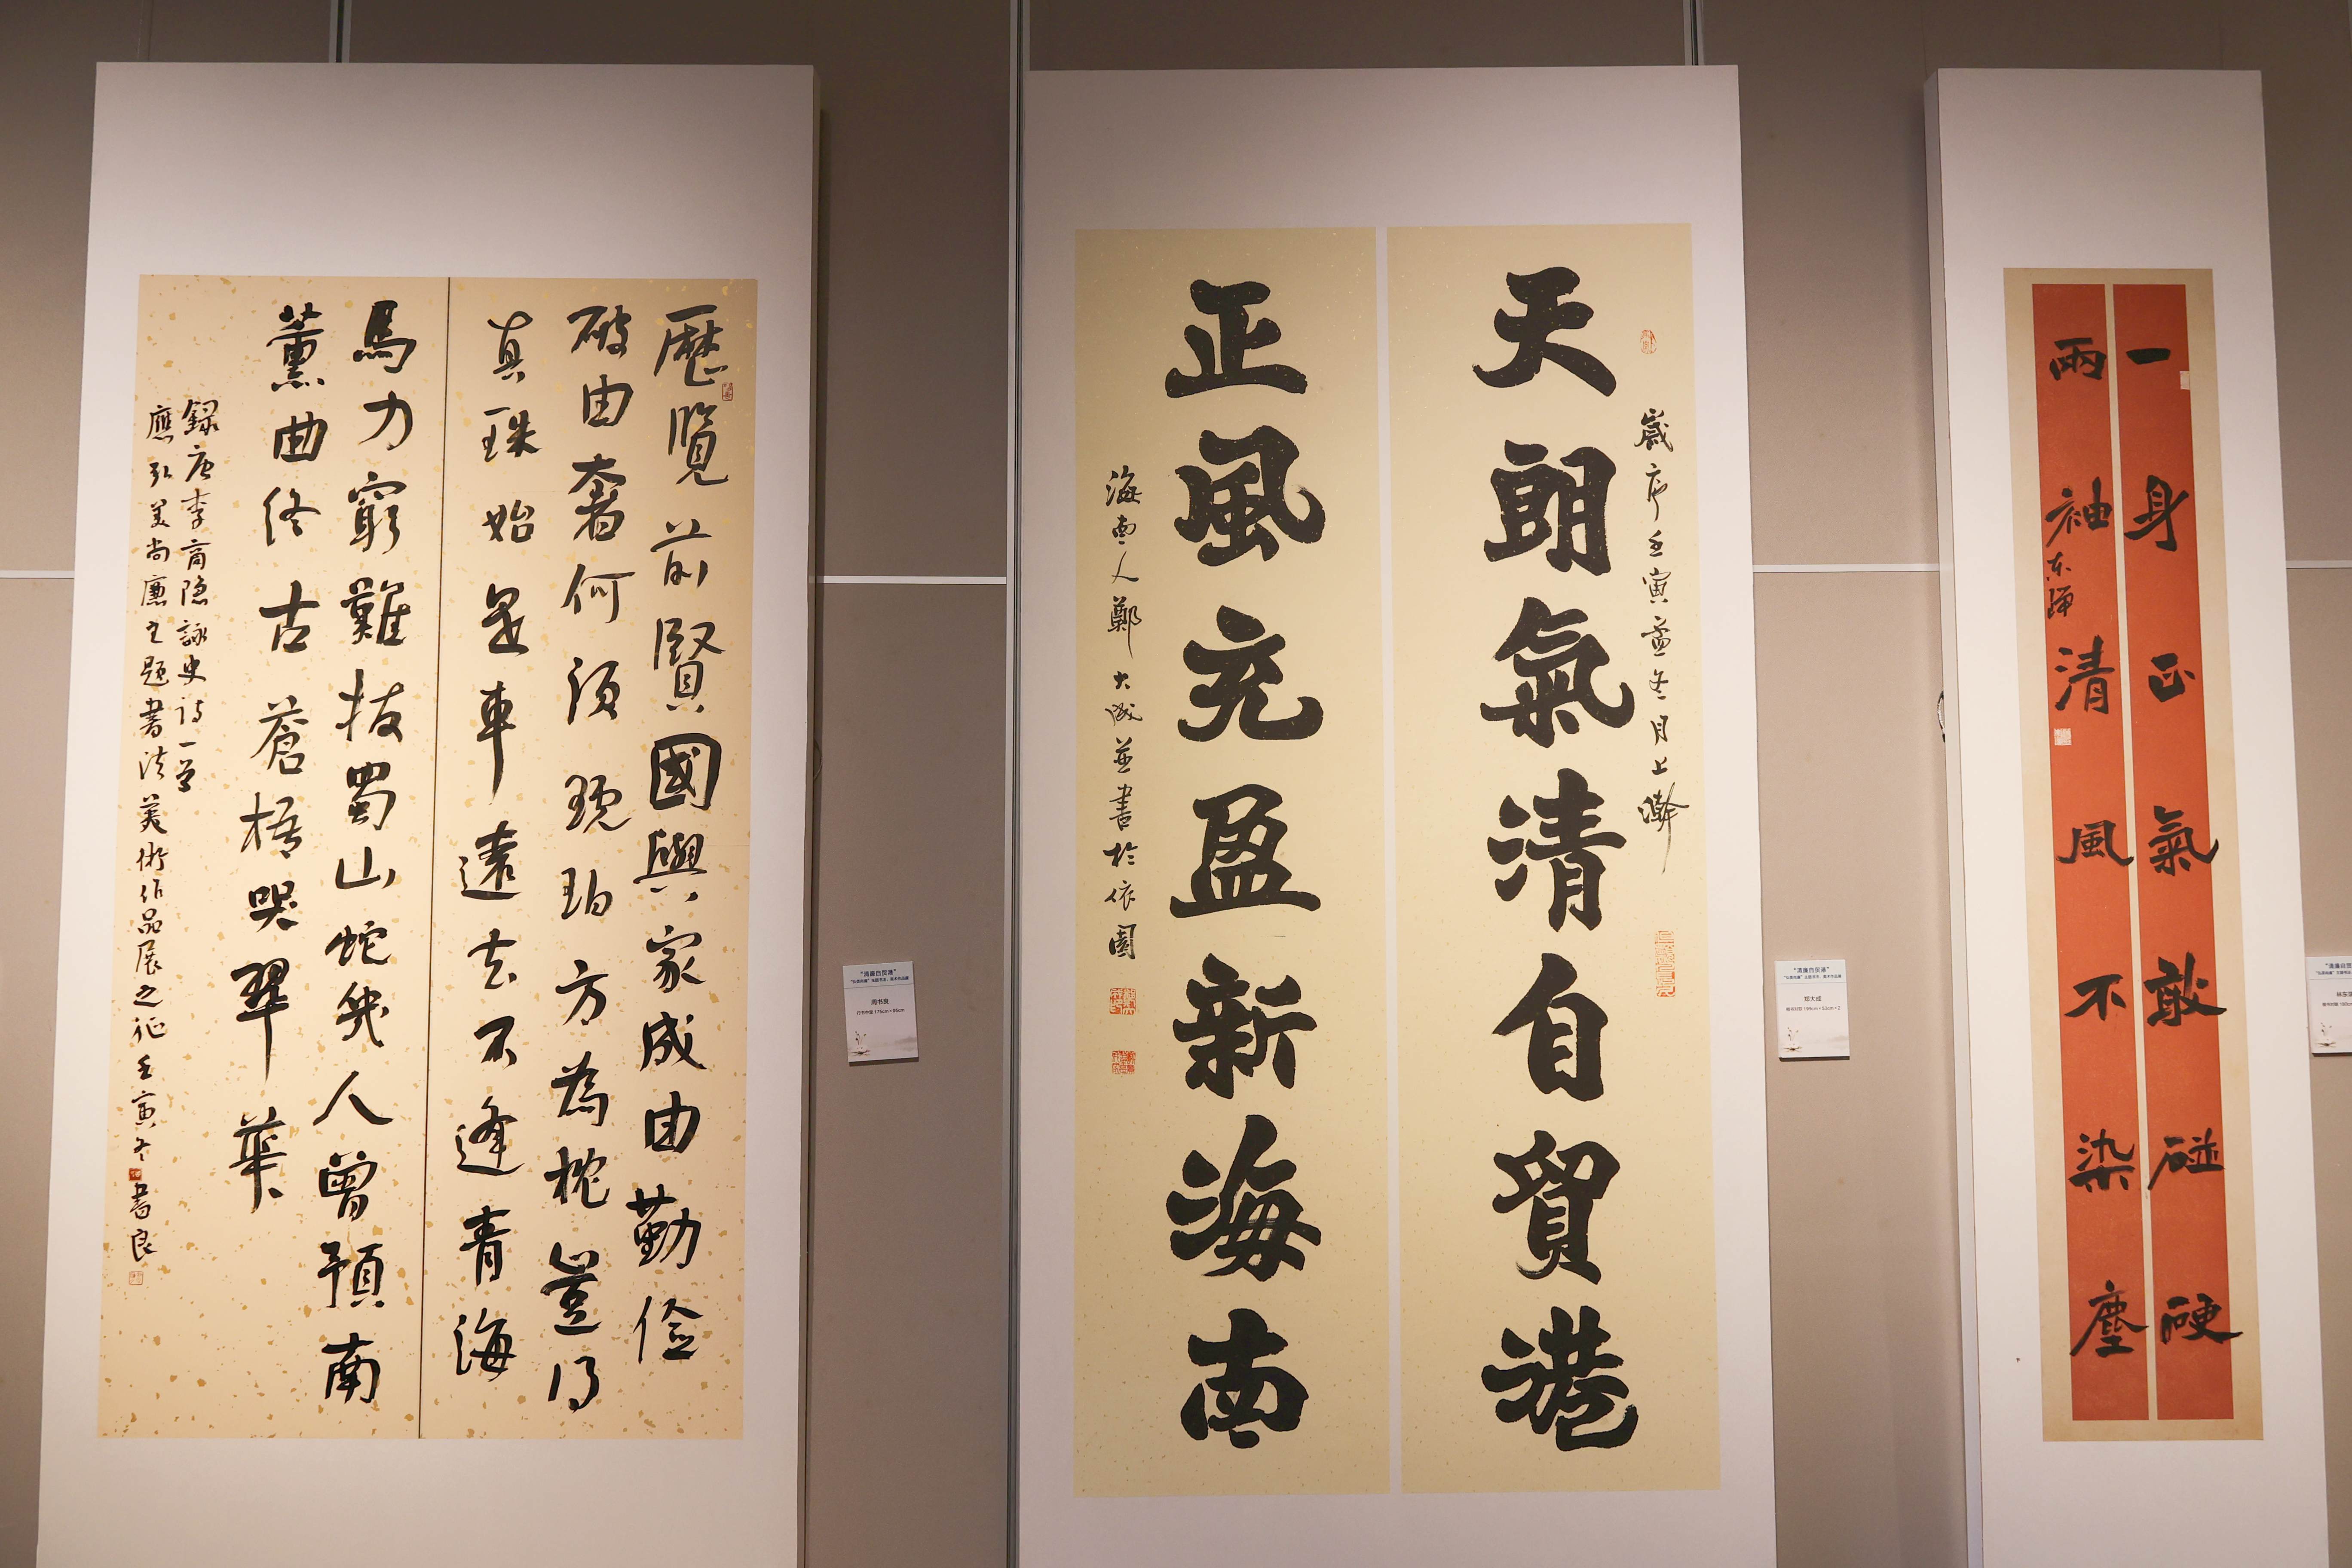 歷覽前賢國與家成由勤儉
破由奢何須琥珀方為枕豈得
真珠始是車遠去不逢青海
馬力窮難拔蜀山蛇幾人曾預南
薰曲終古蒼梧哭翠華
錄唐李商隐詠史诗一首
應弘美尚廉主题書法美術作品展之征壬寅冬書良
“清廉自贸港”
“弘美尚廉”主题书法、美术作品展
周书良
行书中堂 175cm×95cm
歲序壬寅孟冬月上澣
天朗氣清自貿港
正風充盈新海南
海南人鄭大成並書於依園
“清廉自贸港”
“弘美尚廉”主题书法、美术作品展
郑大成
楷书对联 199cm×53cm×2
一身正氣敢碰硬
兩袖清風不染塵
“清廉自贸